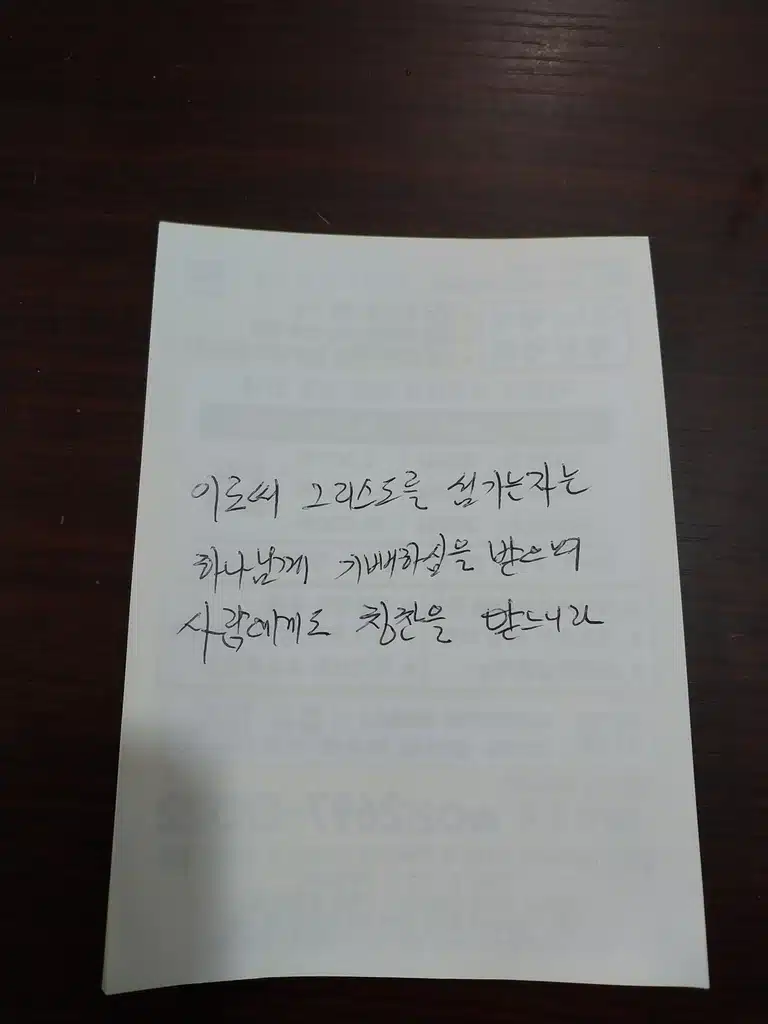 이로써 그리스도를 섬기는자는
하나님께 기뻐하심을 받으며
사람에게도 칭찬을 받느니라